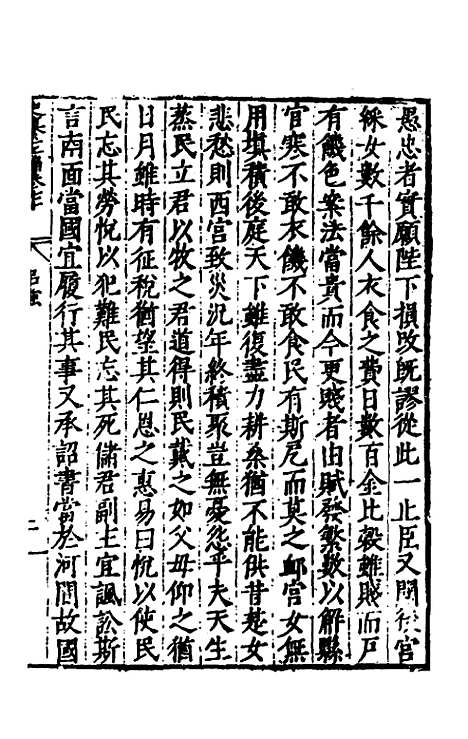 愚忠者實願陛下損改既謬從此一止臣又聞後宮
綵女數千餘人衣食之費日數百金比穀雖賤而戸
有饑色案法當貴而今更賤者由賦發繁數以解縣
官寒不敢衣饑不敢食民有斯厄而莫之䘏宮女無
用填積後庭天下雖復盡力耕桑猶不能供昔楚女
悲愁則西宮致災况年終積聚豈無憂怨乎夫天生
蒸民立君以牧之君道得則民戴之如父母仰之猶
日月雖時有征稅猶望其仁恩之惠易曰悅以使民
民忘其勞悅以犯難民忘其死儲君副主宜諷訟斯
言南面當國宜履行其事又承詔書當於河間故國
呂強